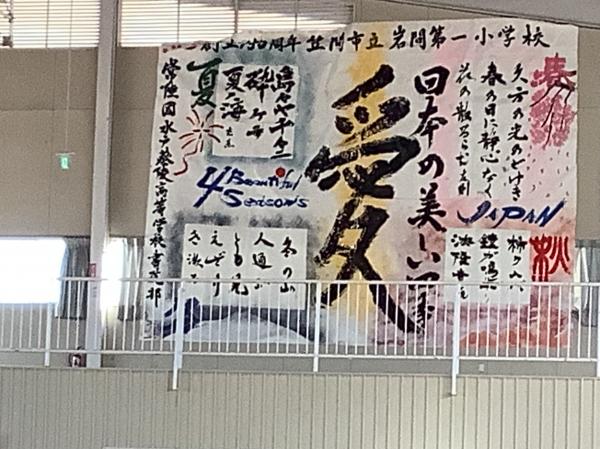 創立150周年 笠間市立 岩間第一小学校
春
久方の光のどけき
春の日に静心なく
花の散るらむ 友則
JAPAN
秋
柿くへば
鐘が鳴るなり
法隆寺
日本の美しい四季
愛
夏
島々や千々に
砕けて
夏の海
4 Beautiful Seasons
冬の山
人通ふ
とも見
えざり
常陸国水戸葵陵高等学校書道部